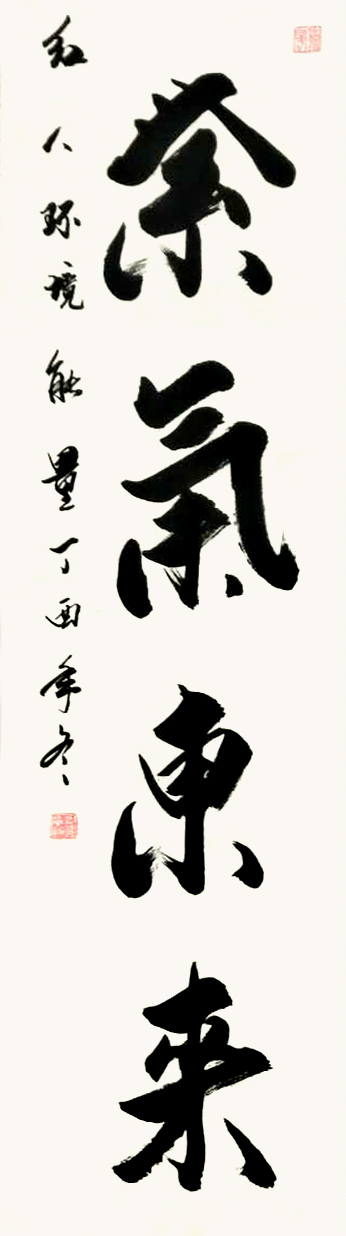 紫氣東来
红人环境能量丁酉年冬